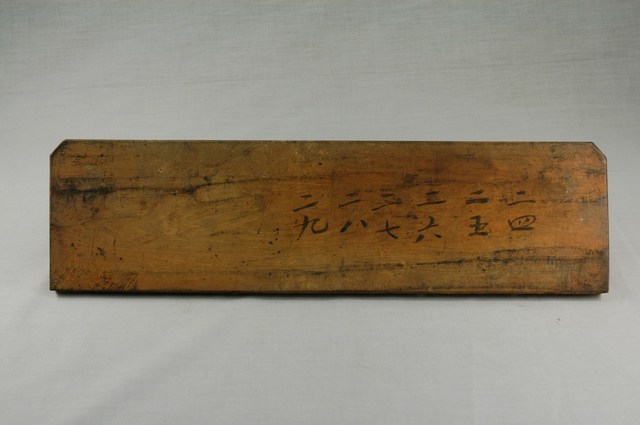 二四
二五
二六
二七
二八
二九